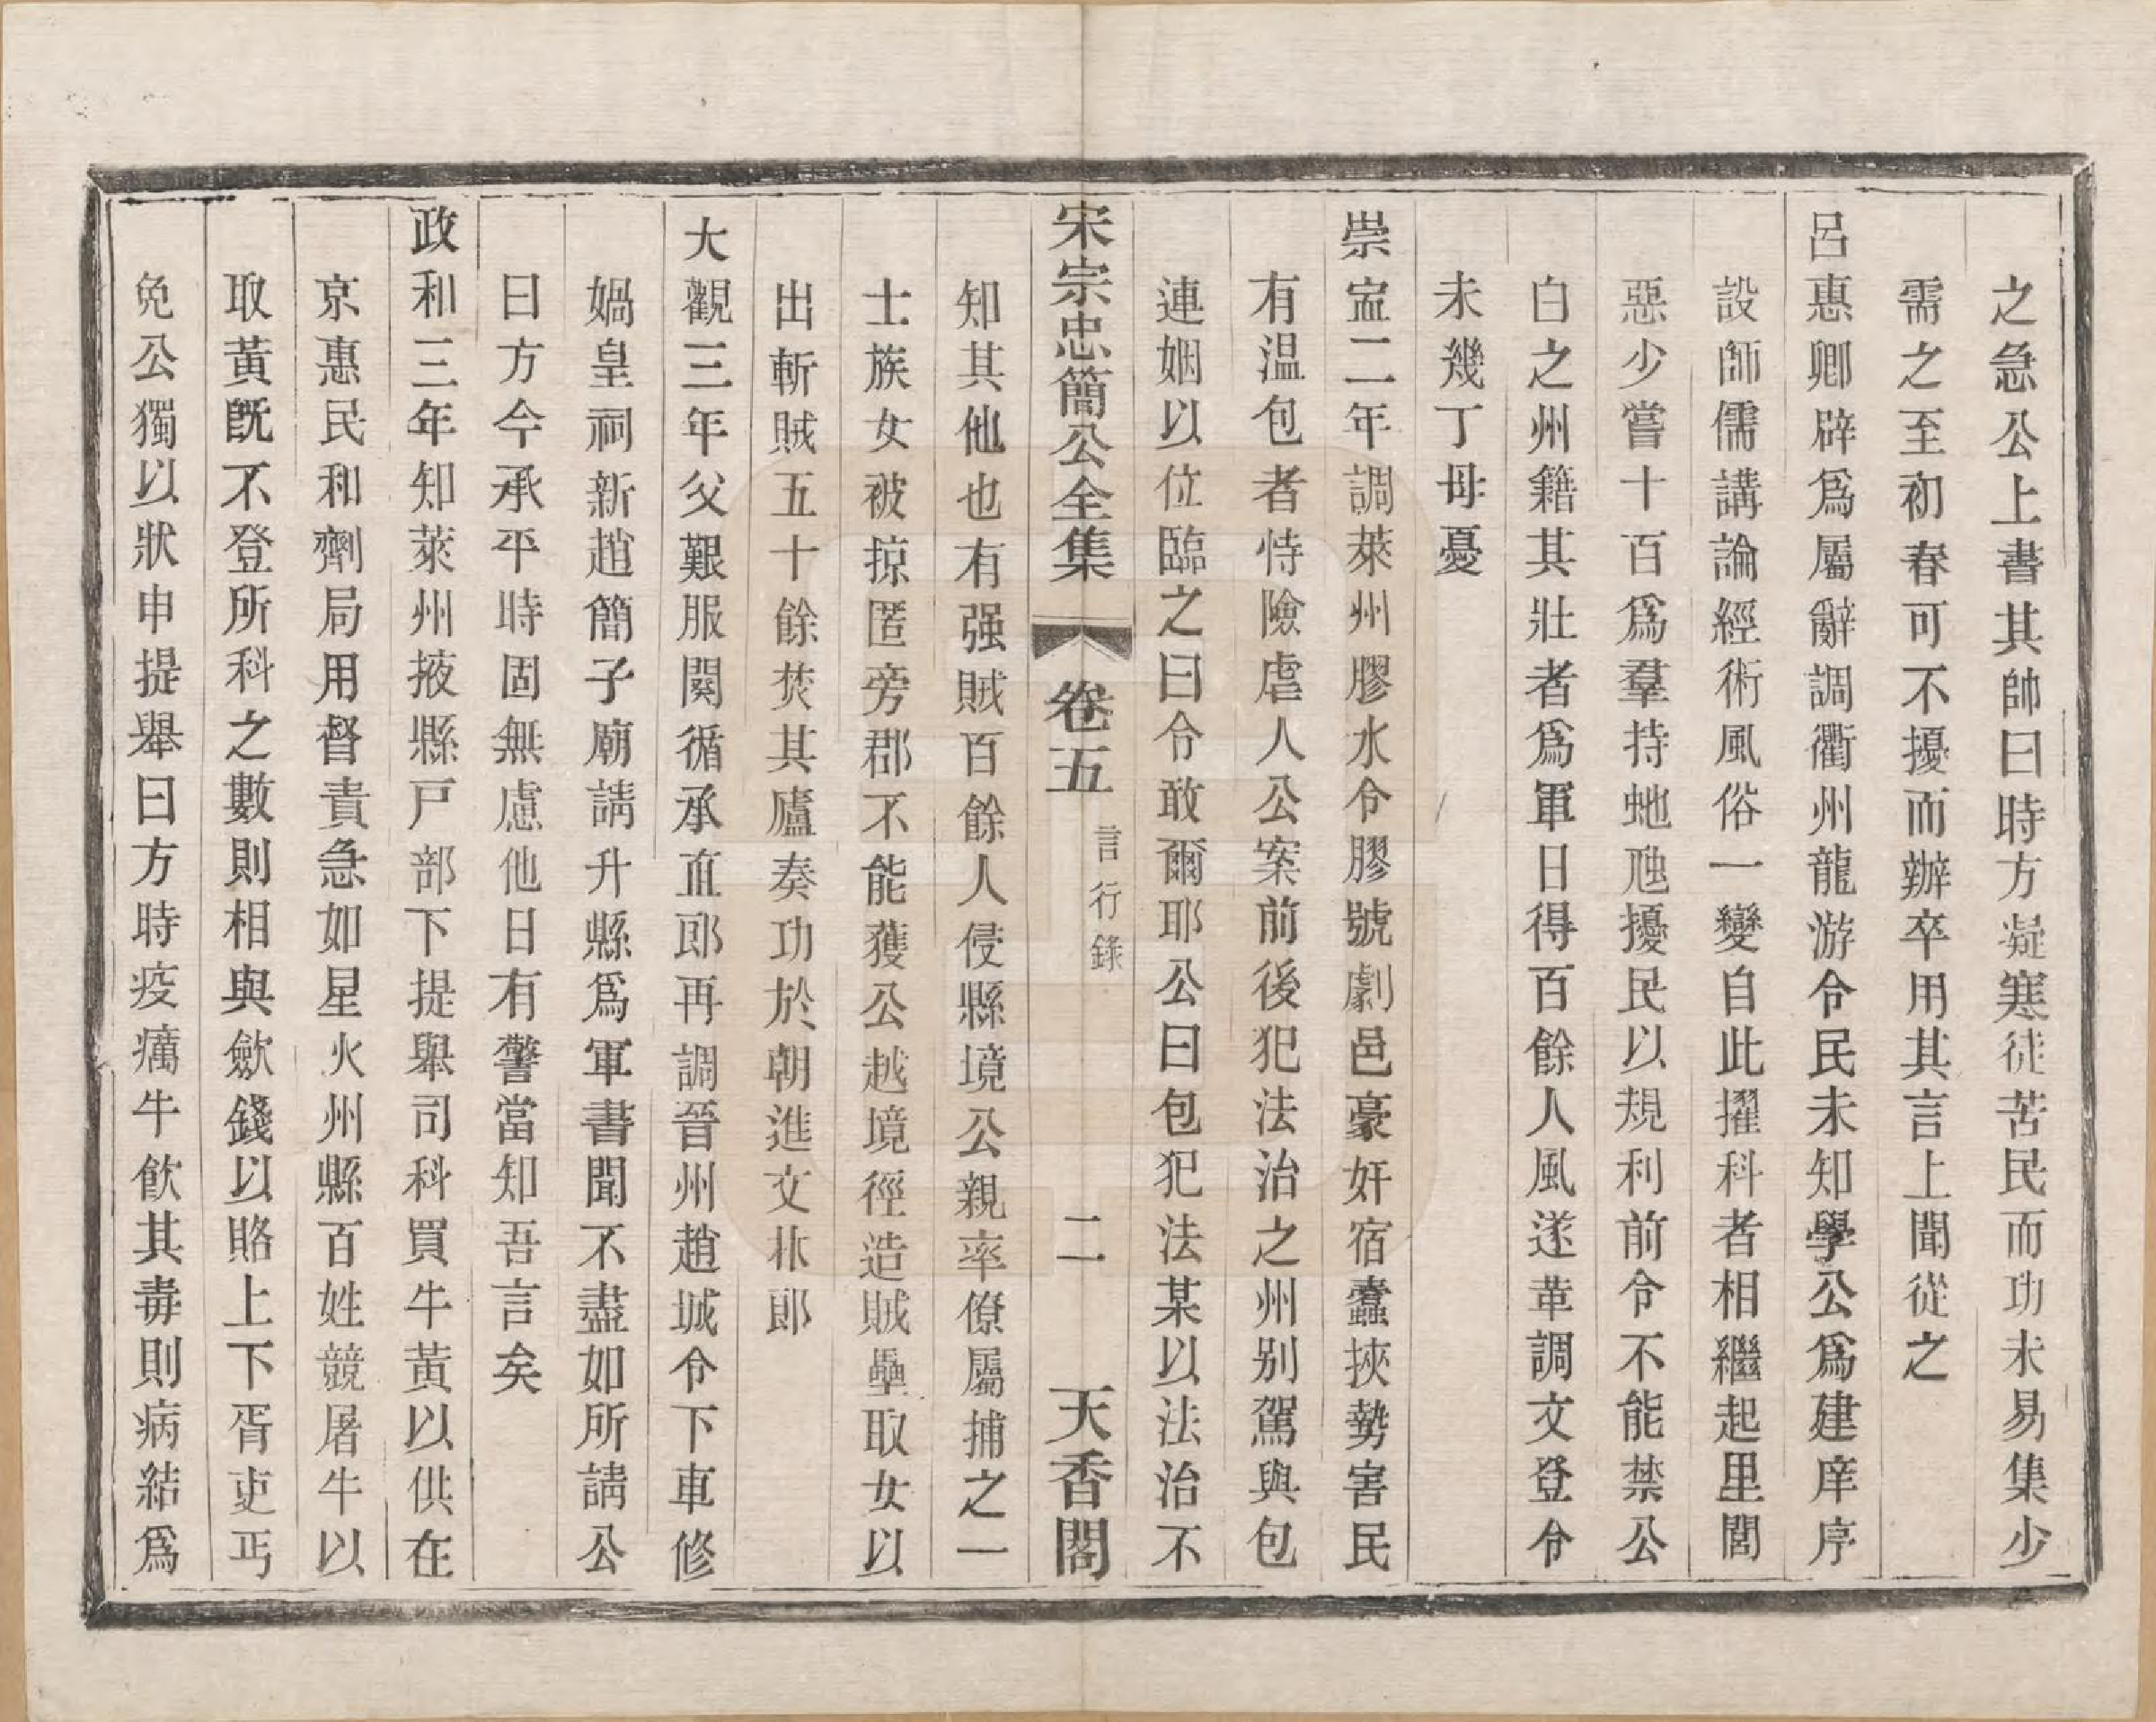 之急公上書其帥曰時方凝寒徒苦民而功未易集少
需之至初春可不擾而辦卒用其言上聞從之
呂惠卿辟爲屬辭調衢州龍游令民未知學公爲建庠序
設師儒講論經術風俗一變自此擢科者相繼起里閭
惡少嘗十百爲羣持虵虺擾民以規利前令不能禁公
白之州籍其壯者爲軍日得百餘人風遂革調文登令
未幾丁母憂
崇寍二年調萊州膠水令膠號劇邑豪奸宿蠹挾勢害民
有温包者恃險虐人公案前後犯法治之州别駕與包
連姻以位臨之曰令敢爾耶公曰包犯法某以法治不
宋宗忠簡公全集 卷五 言行錄 二 天香閣
知其他也有强賊百餘人侵縣境公親率僚屬捕之一
士族女被掠匿旁郡不能獲公越境徑造賊壘取女以
出斬賊五十餘焚其廬奏功於朝進文林郎
大觀三年父艱服闋循承直郎再調晉州趙城令下車修
媧皇祠新趙簡子廟請升縣爲軍書聞不盡如所請公
曰方今承平時固無慮他日有警當知吾言矣
政和三年知萊州掖縣戸部下提舉司科買牛黃以供在
京惠民和劑局用督責急如星火州縣百姓競屠牛以
取黃旣不登所科之數則相與歛錢以賂上下胥吏丐
免公獨以狀申提舉曰方時疫癘牛飲其毒則病結爲